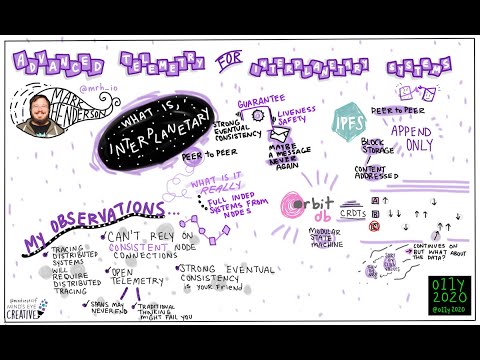 ADVANCED TELEMETRY FOR INTERPLANETARY SYSTEMS
@mrh_io
MARK HENDERSON
WHAT IS
INTERPLANETARY
PEER to PEER
GUARANTEE
STRONG
EVENTUAL
CONSISTENCY
LIVENESS
SAFETY
MAYBE
A MESSAGE
NEVER
AGAIN
IPFS
PEER to PEER
BLOCK
STORAGE
CONTENT
ADDRESSED
APPEND
ONLY
WHAT IS IT
REALLY
FULL INDED
SYSTEMS FROM
NODES
orbit
db
CRDTS
MODULAR
STATE
MACHINE
A
B
C
MY OBSERVATIONS...
TRACING
DISTRIBUTED
SYSTEMS
WILL
REQUIRE
DISTRIBUTED
TRACING
CAN'T RELY ON
CONSISTENT NODE
CONNECTIONS
OPEN
TELEMETRY
SPANS MAY
NEVER END
TRADITIONAL
THINKING
MIGHT FAIL YOU
STRONG EVENTUAL
CONSISTENCY
IS YOUR FRIEND
CONTINUES ON
BUT WHAT ABOUT
THE DATA?
MIND'S EYE
CREATIVE
o11y
2020
@o11y2020